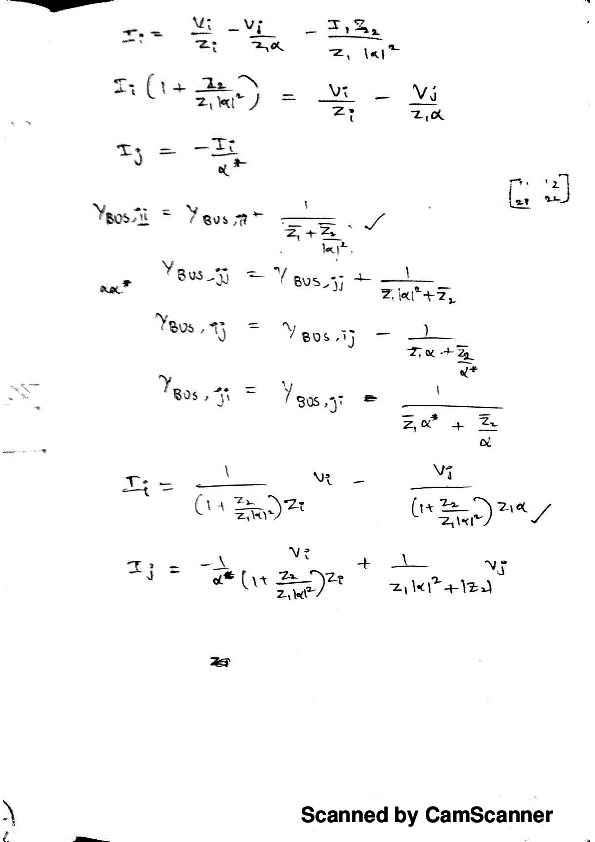 I_i = V_i/Z_i - V_j/(Z_1 α) - I_1 Z_2/(Z_1 |α|^2)
I_i (1 + Z_2/(Z_1 |α|^2)) = V_i/Z_i - V_j/(Z_1 α)
I_j = -I_i/α*
[11 12
21 22]
Y_BUS,ii = Y_BUS,ii + 1/(Z̄_1 + Z̄_2/|α|^2) ✓
αα* Y_BUS,jj = Y_BUS,jj + 1/(Z̄_1 |α|^2 + Z̄_2)
Y_BUS,ij = Y_BUS,ij - 1/(Z̄_1 α + Z̄_2/α*)
Y_BUS,ji = Y_BUS,ji - 1/(Z̄_1 α* + Z̄_2/α)
I_i = 1/((1 + Z_2/(Z_1 |α|^2)) Z_i) V_i - V_j/((1 + Z_2/(Z_1 |α|^2)) Z_1 α) ✓
I_j = -1/α* V_i/((1 + Z_2/(Z_1 |α|^2)) Z_i) + 1/(Z_1 |α|^2 + |Z_2|) V_j
Scanned by CamScanner